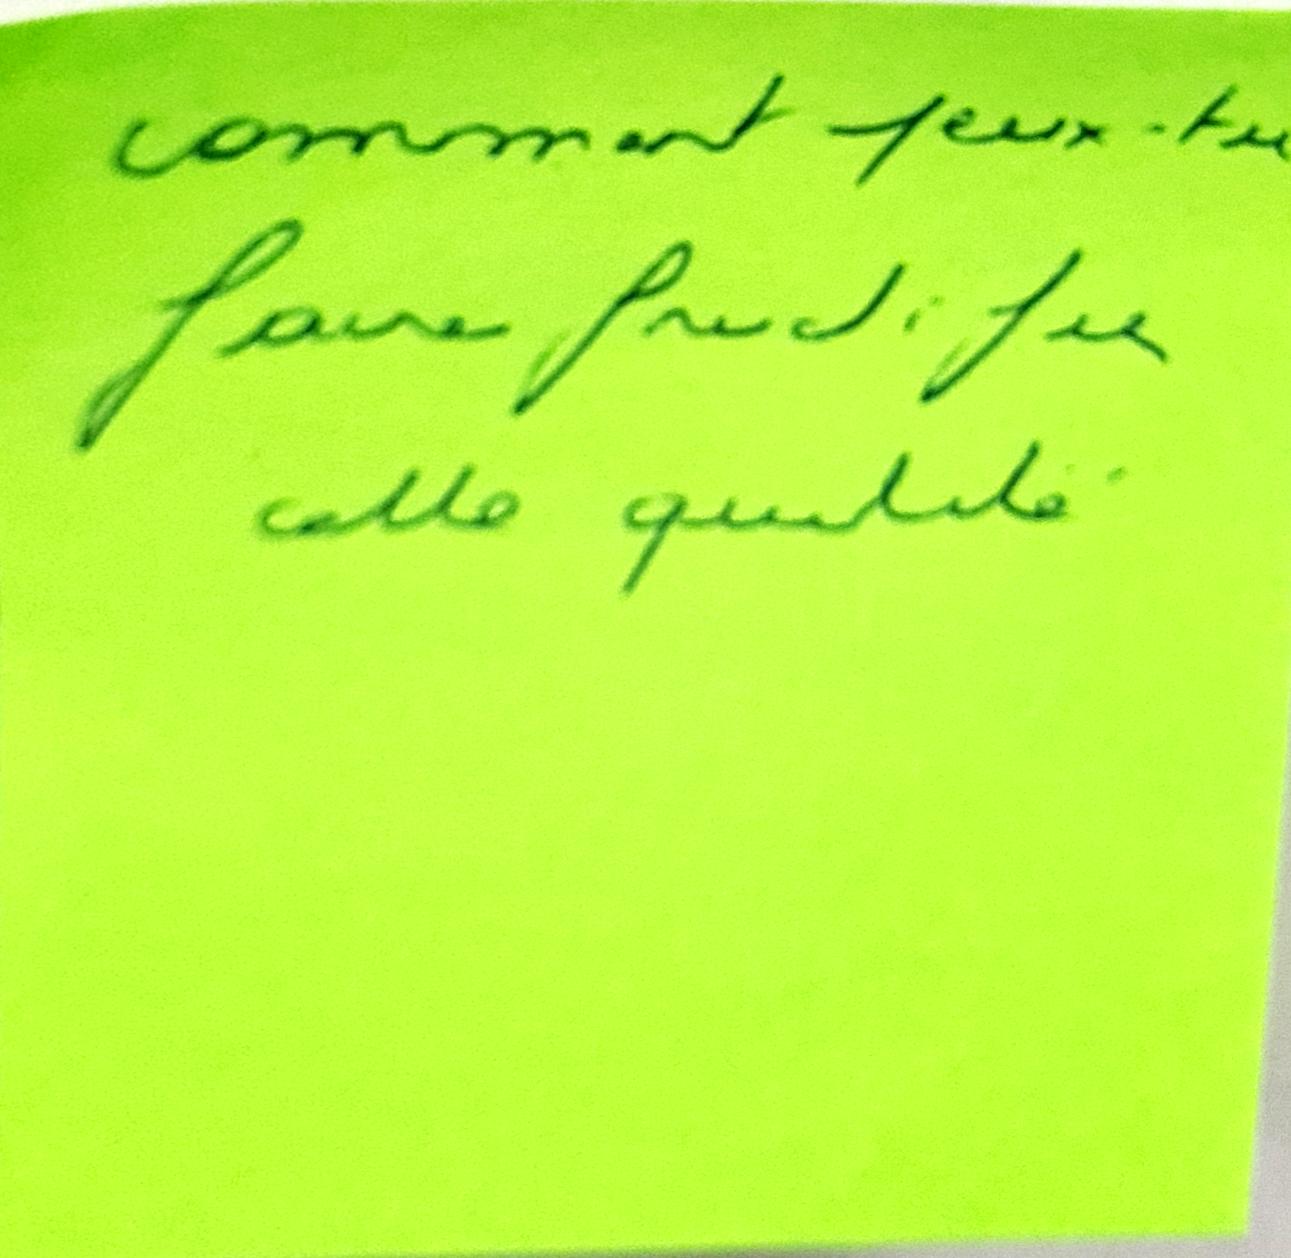 comment peux-tu
faire fructifier
cette qualité